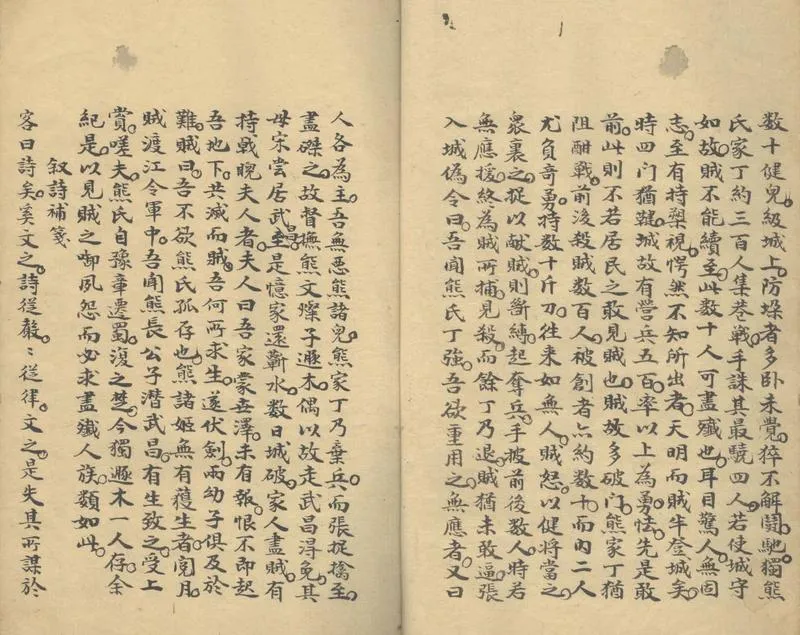 数十健兒級城上防垛者多卧未覺猝不解鬪馳獨熊
氏家丁約三百人集巷戰手誅其最驍四人若使城守
如故賊不能續至此数十人可盡殲也耳目驚人無固
志至有持槊視愕然不知所出者天明而賊牛登城矣
時四门猶鍵城故有營兵五百率以上為勇怯先是敢
前此則不若居民之敢見賊也賊故多破门熊家丁猶
阻酣戰前後殺賊数百人被創者亦約数十而内二人
尤負奇勇持数十斤刀往来如無人賊怒以健將當之
衆裹之捉以献賊則斷縛起奪兵手被前後数人時若
無應援終為賊所捕見殺而餘丁乃退賊猶未敢逼張
入城偽令曰吾聞熊氏丁強吾欲重用之無應者又曰
人各為主吾無惡熊諸兒熊家丁乃棄兵而張捉擒至
盡磔之故督撫熊文燦子遯木偶以故走武昌得免其
母宋尝居武昌至是憶家還蘄水数日城破家人盡賊有
持戟睨夫人者夫人曰吾家蒙壺澤未有報恨不即起
吾地下共滅而賊吾何所求生遂伏劍而幼子俱及於
難賊曰吾不欲熊氏孤存也熊諸姬無有獲生者阅月
賊渡江令軍中吾聞熊長公子潜武昌有生致之受上
賞嗟夫熊氏自豫章遷蜀復之楚今獨遯木一人存余
紀是以見賊之啣夙怨而必求盡殲人族類如此
叙詩補箋
客曰詩矣奚文之詩從嚴嚴從律文之是失其所謀於